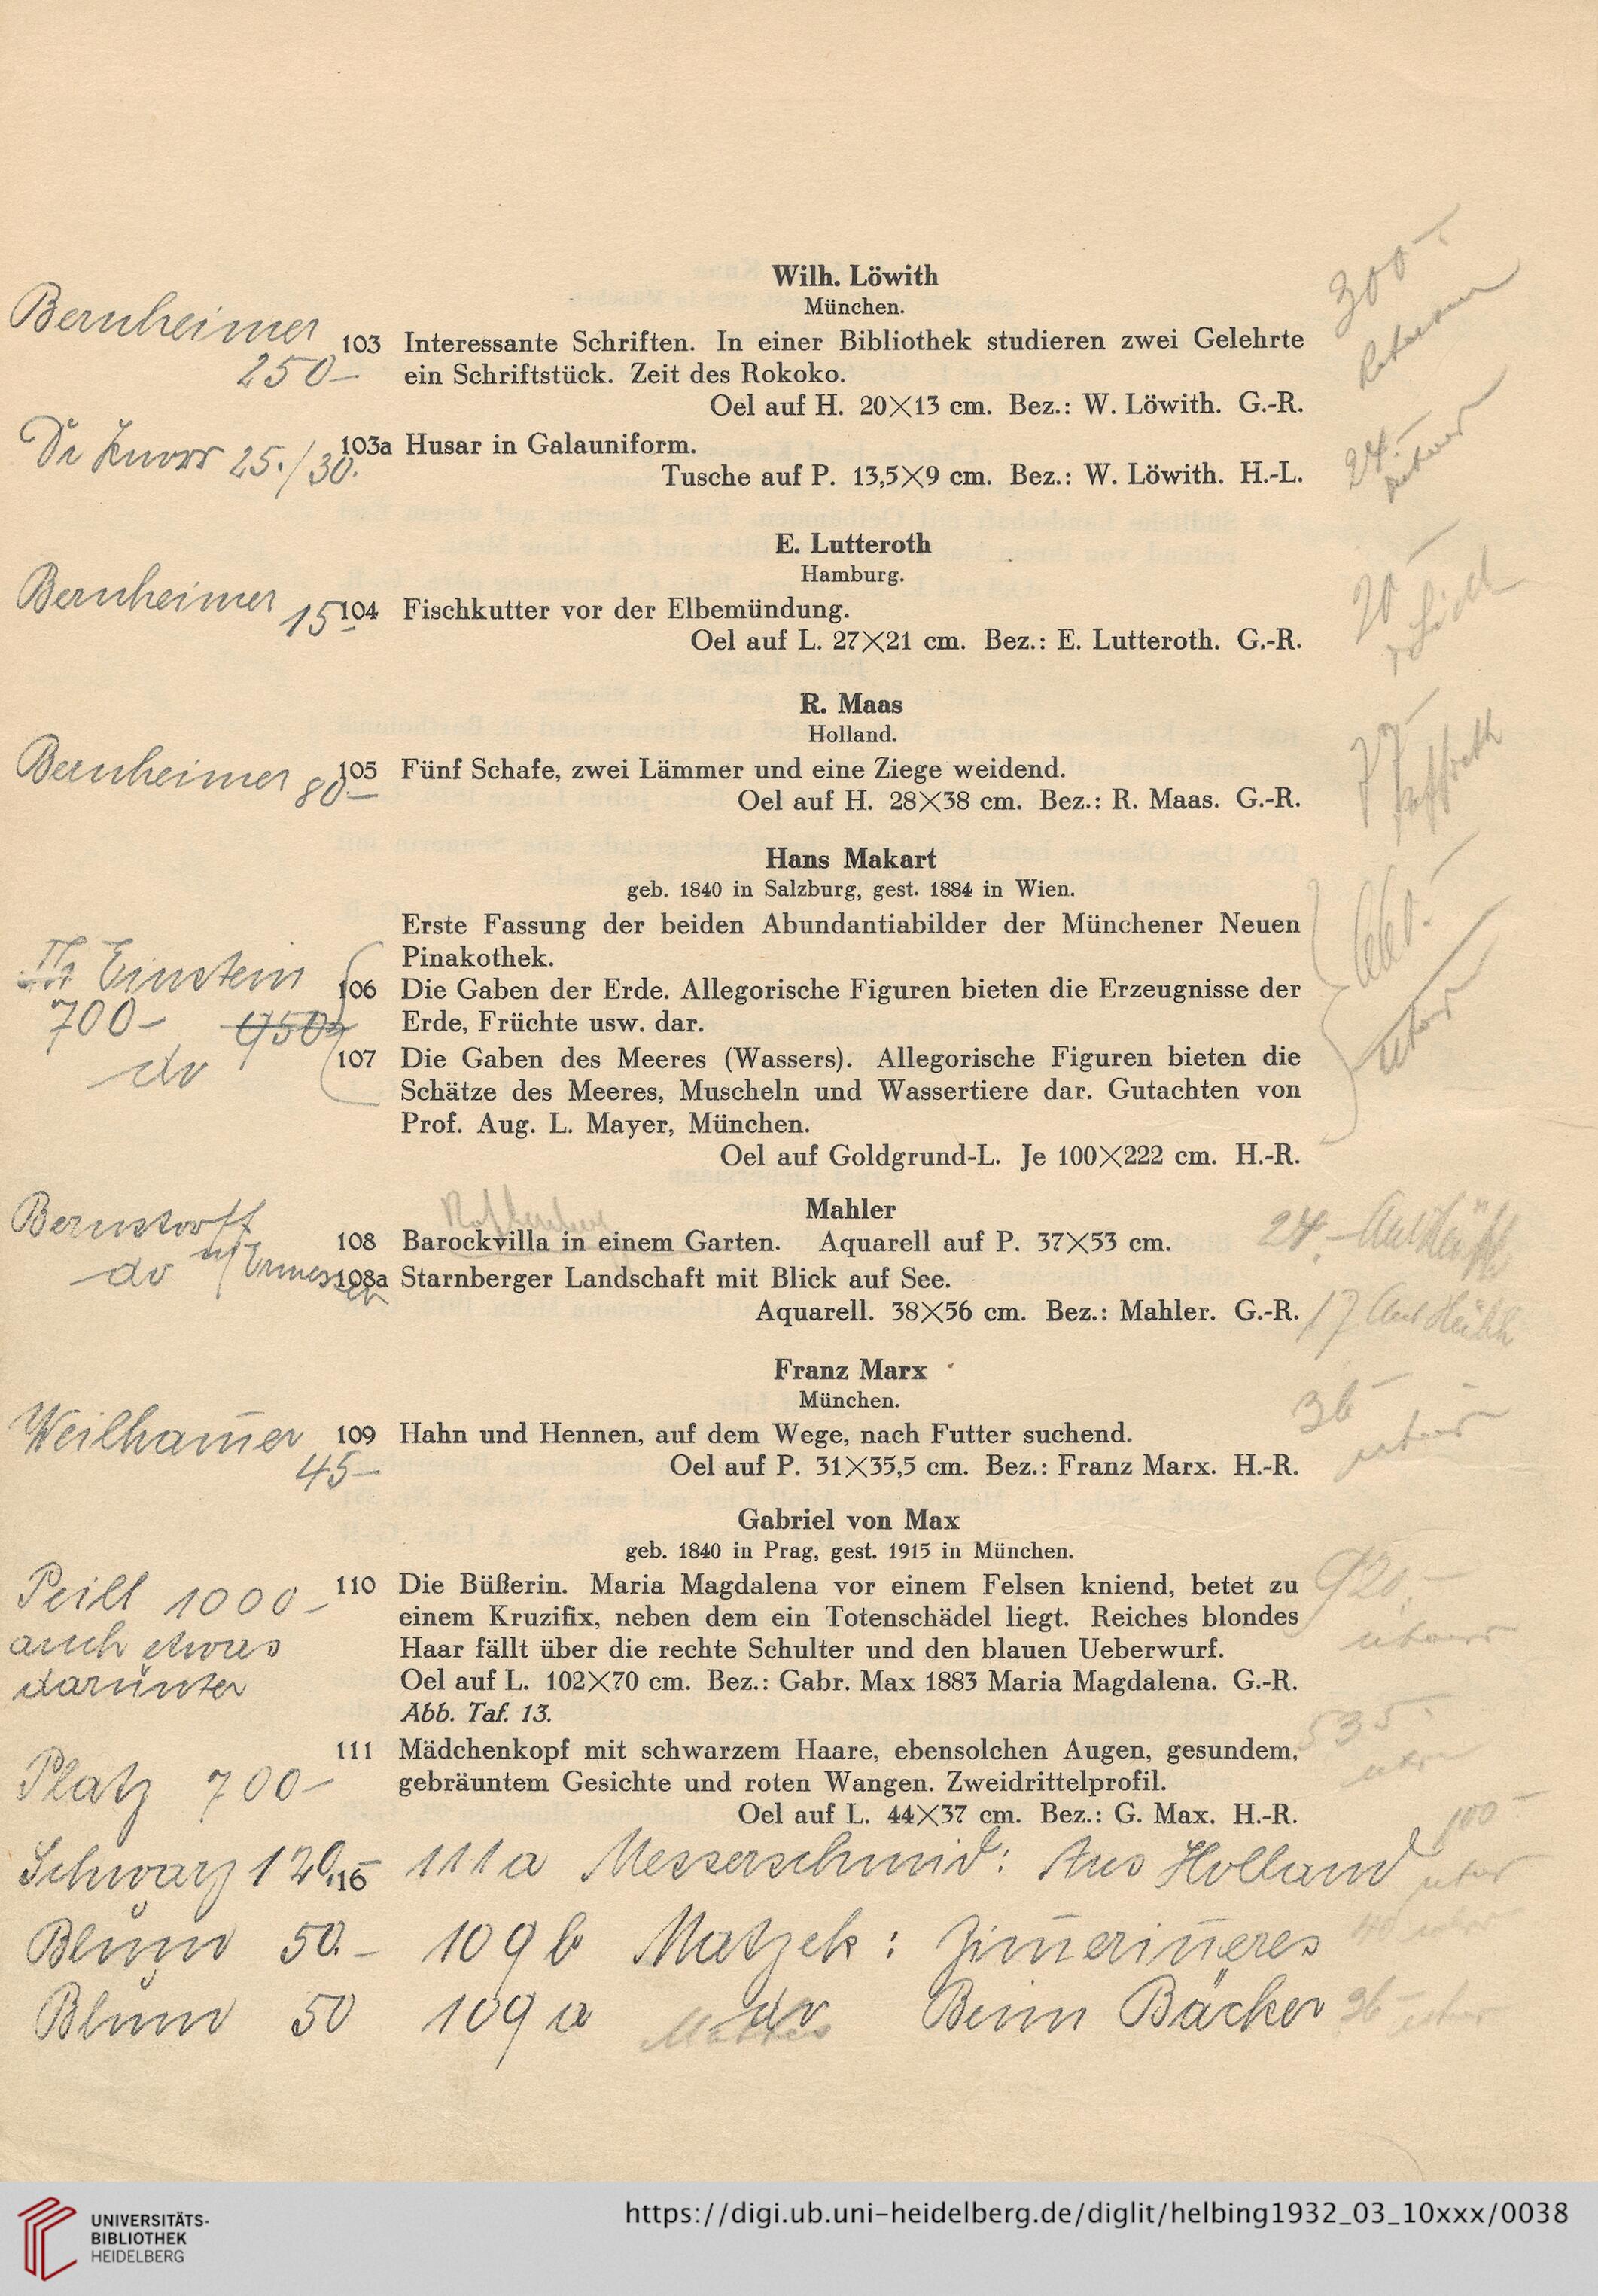 Wilh. Löwith
München.
Bernheimer
250–
300.–
103 Interessante Schriften. In einer Bibliothek studieren zwei Gelehrte
ein Schriftstück. Zeit des Rokoko.
Oel auf H. 20×13 cm. Bez.: W. Löwith. G.-R.
Dr Knorr 25./30.
24.–
103a Husar in Galauniform.
Tusche auf P. 13,5×9 cm. Bez.: W. Löwith. H.-L.
E. Lutteroth
Hamburg.
Bernheimer 15–
20–
104 Fischkutter vor der Elbemündung.
Oel auf L. 27×21 cm. Bez.: E. Lutteroth. G.-R.
R. Maas
Holland.
Bernheimer 80–
105 Fünf Schafe, zwei Lämmer und eine Ziege weidend.
Oel auf H. 28×38 cm. Bez.: R. Maas. G.-R.
Hans Makart
geb. 1840 in Salzburg, gest. 1884 in Wien.
Erste Fassung der beiden Abundantiabilder der Münchener Neuen
Pinakothek.
Th Einstein
700–
do
106 Die Gaben der Erde. Allegorische Figuren bieten die Erzeugnisse der
Erde, Früchte usw. dar.
107 Die Gaben des Meeres (Wassers). Allegorische Figuren bieten die
Schätze des Meeres, Muscheln und Wassertiere dar. Gutachten von
Prof. Aug. L. Mayer, München.
Oel auf Goldgrund-L. Je 100×222 cm. H.-R.
Mahler
Bernstorff
do n/Ermessen
24.–
108 Barockvilla in einem Garten. Aquarell auf P. 37×53 cm.
108a Starnberger Landschaft mit Blick auf See.
Aquarell. 38×56 cm. Bez.: Mahler. G.-R.
17
Franz Marx
München.
Weilham̅er
45–
36–
109 Hahn und Hennen, auf dem Wege, nach Futter suchend.
Oel auf P. 31×35,5 cm. Bez.: Franz Marx. H.-R.
Gabriel von Max
geb. 1840 in Prag, gest. 1915 in München.
Peill 1000–
auch etwas
darunter
920.–
110 Die Büßerin. Maria Magdalena vor einem Felsen kniend, betet zu
einem Kruzifix, neben dem ein Totenschädel liegt. Reiches blondes
Haar fällt über die rechte Schulter und den blauen Ueberwurf.
Oel auf L. 102×70 cm. Bez.: Gabr. Max 1883 Maria Magdalena. G.-R.
Abb. Taf. 13.
Platz 700–
535.–
111 Mädchenkopf mit schwarzem Haare, ebensolchen Augen, gesundem,
gebräuntem Gesichte und roten Wangen. Zweidrittelprofil.
Oel auf L. 44×37 cm. Bez.: G. Max. H.-R.
Schwarz 120.– 111a Messerschmid: Aus Holland 100–
16
Blum 50.– 109b Matzek: Zim̅erin̅eres 40
Blum 50 109a do Beim Bäcker 36–
UNIVERSITÄTS-
BIBLIOTHEK
HEIDELBERG
https://digi.ub.uni-heidelberg.de/diglit/helbing1932_03_10xxx/0038